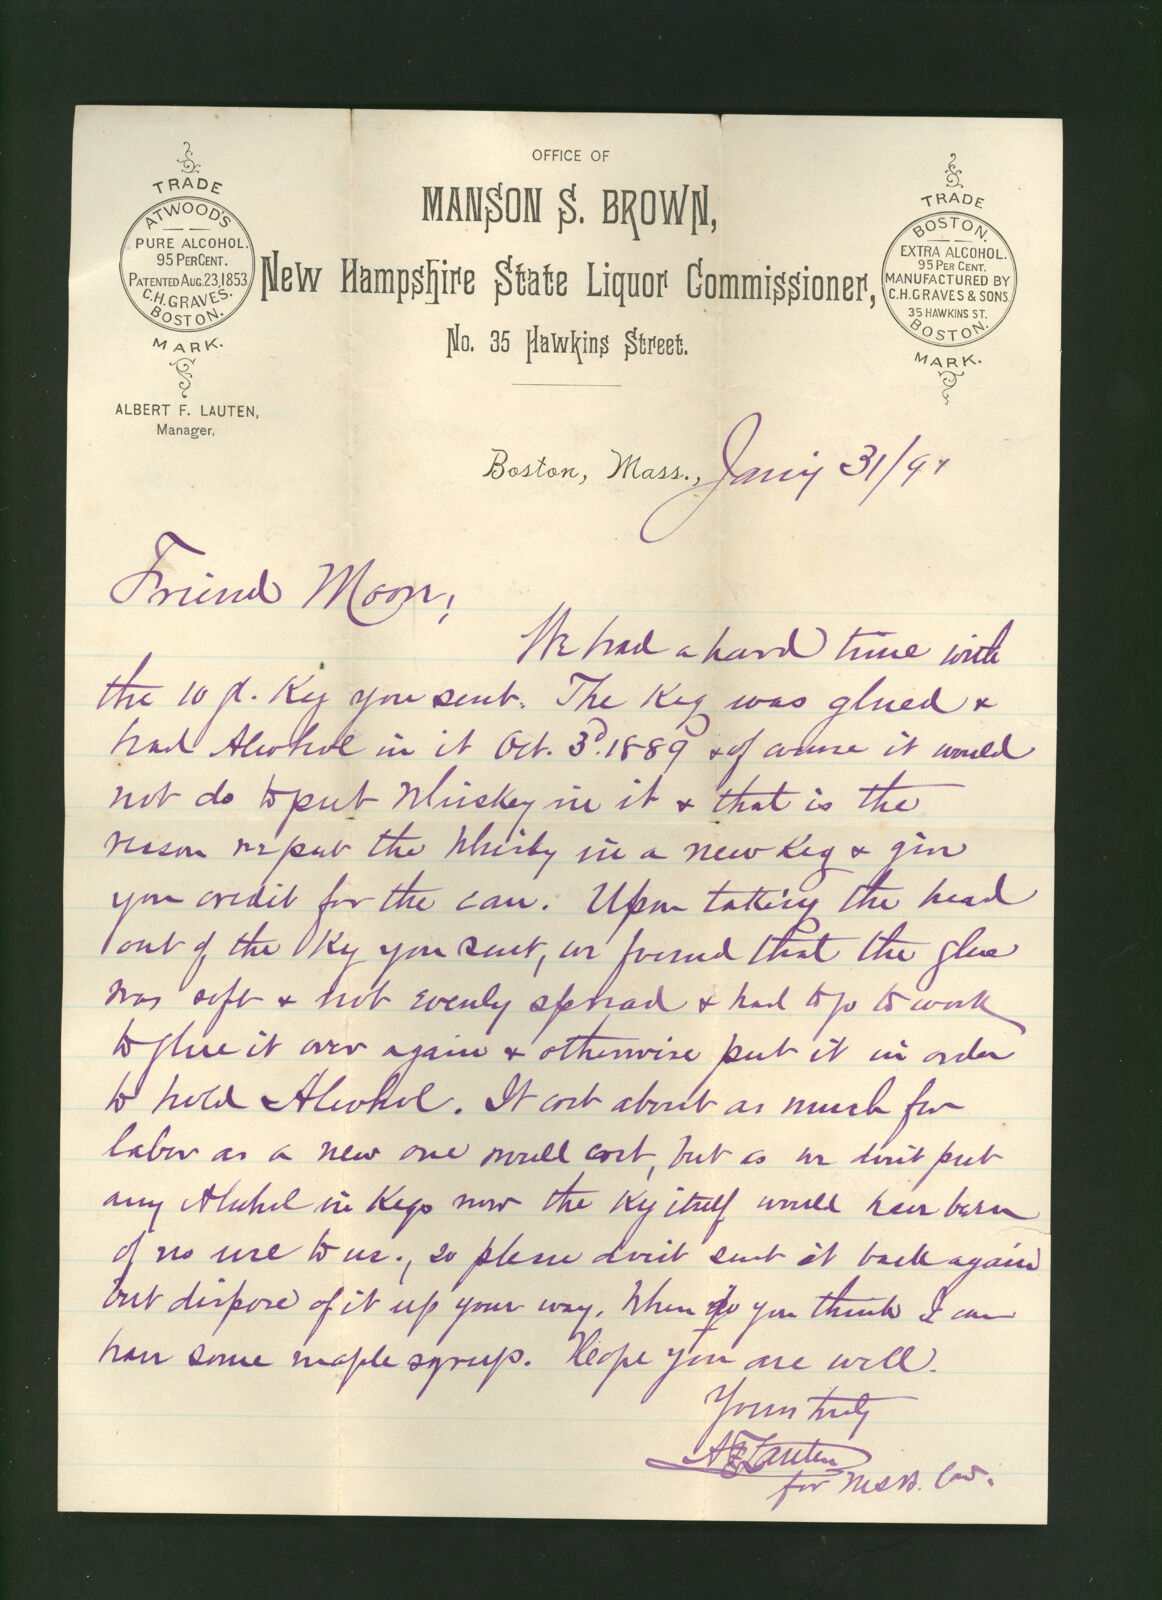 OFFICE OF
MANSON S. BROWN,
New Hampshire State Liquor Commissioner,
No. 35 Hawkins Street.
TRADE
ATWOOD'S
PURE ALCOHOL.
95 PER CENT.
PATENTED AUG. 23, 1853
C.H. GRAVES.
BOSTON.
MARK.
ALBERT F. LAUTEN,
Manager,
TRADE
BOSTON.
EXTRA ALCOHOL.
95 PER CENT.
MANUFACTURED BY
C.H. GRAVES & SONS
35 HAWKINS ST.
BOSTON.
MARK.
Boston, Mass., Jany 31/91
Friend Moon,
We had a hard time with
the 10 g. Keg you sent. The Keg was glued &
had Alcohol in it Oct. 3d. 1889 & of course it would
not do to put Whiskey in it & that is the
reason we put the Whisky in a new Keg & give
you credit for the can. Upon taking the head
out of the Keg you sent, we found that the glue
was soft & not evenly spread & had to go to work
to glue it over again & otherwise put it in order
to hold Alcohol. It cost about as much for
labor as a new one would cost, but as we don't put
any Alcohol in Kegs now the Keg itself would have been
of no use to us., so please don't send it back again
but dispose of it up your way. When do you think I can
have some maple syrup. Hope you are well.
Yours truly
A F Lauten
for M S B. Com.